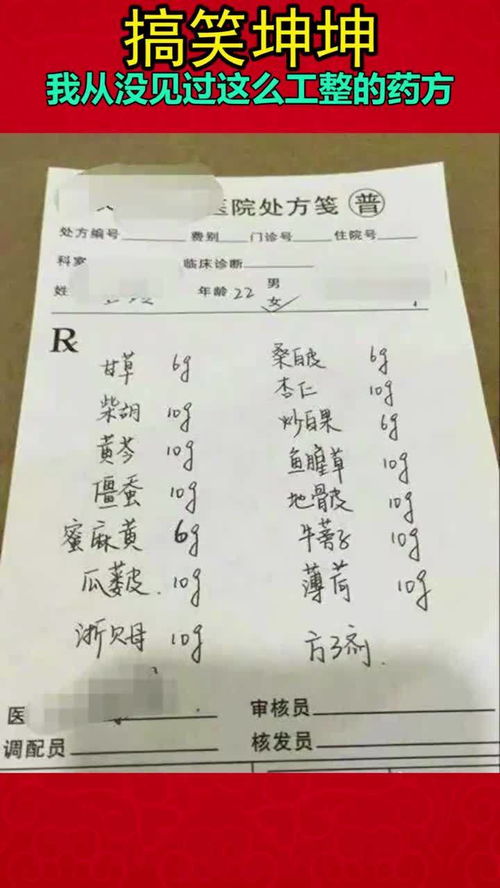 搞笑坤坤
我从没见过这么工整的药方
医院处方笺 普
处方编号 费别 门诊号 住院号
科室 临床诊断
姓 年龄 22 男
女
R
甘草 6g 桑白皮 6g
柴胡 10g 杏仁 10g
黄芩 10g 炒白果 6g
僵蚕 10g 鱼腥草 10g
蜜麻黄 6g 地骨皮 10g
瓜蒌皮 10g 牛蒡子 10g
浙贝母 10g 薄荷 10g
方3剂
医 审核员
调配员 核发员